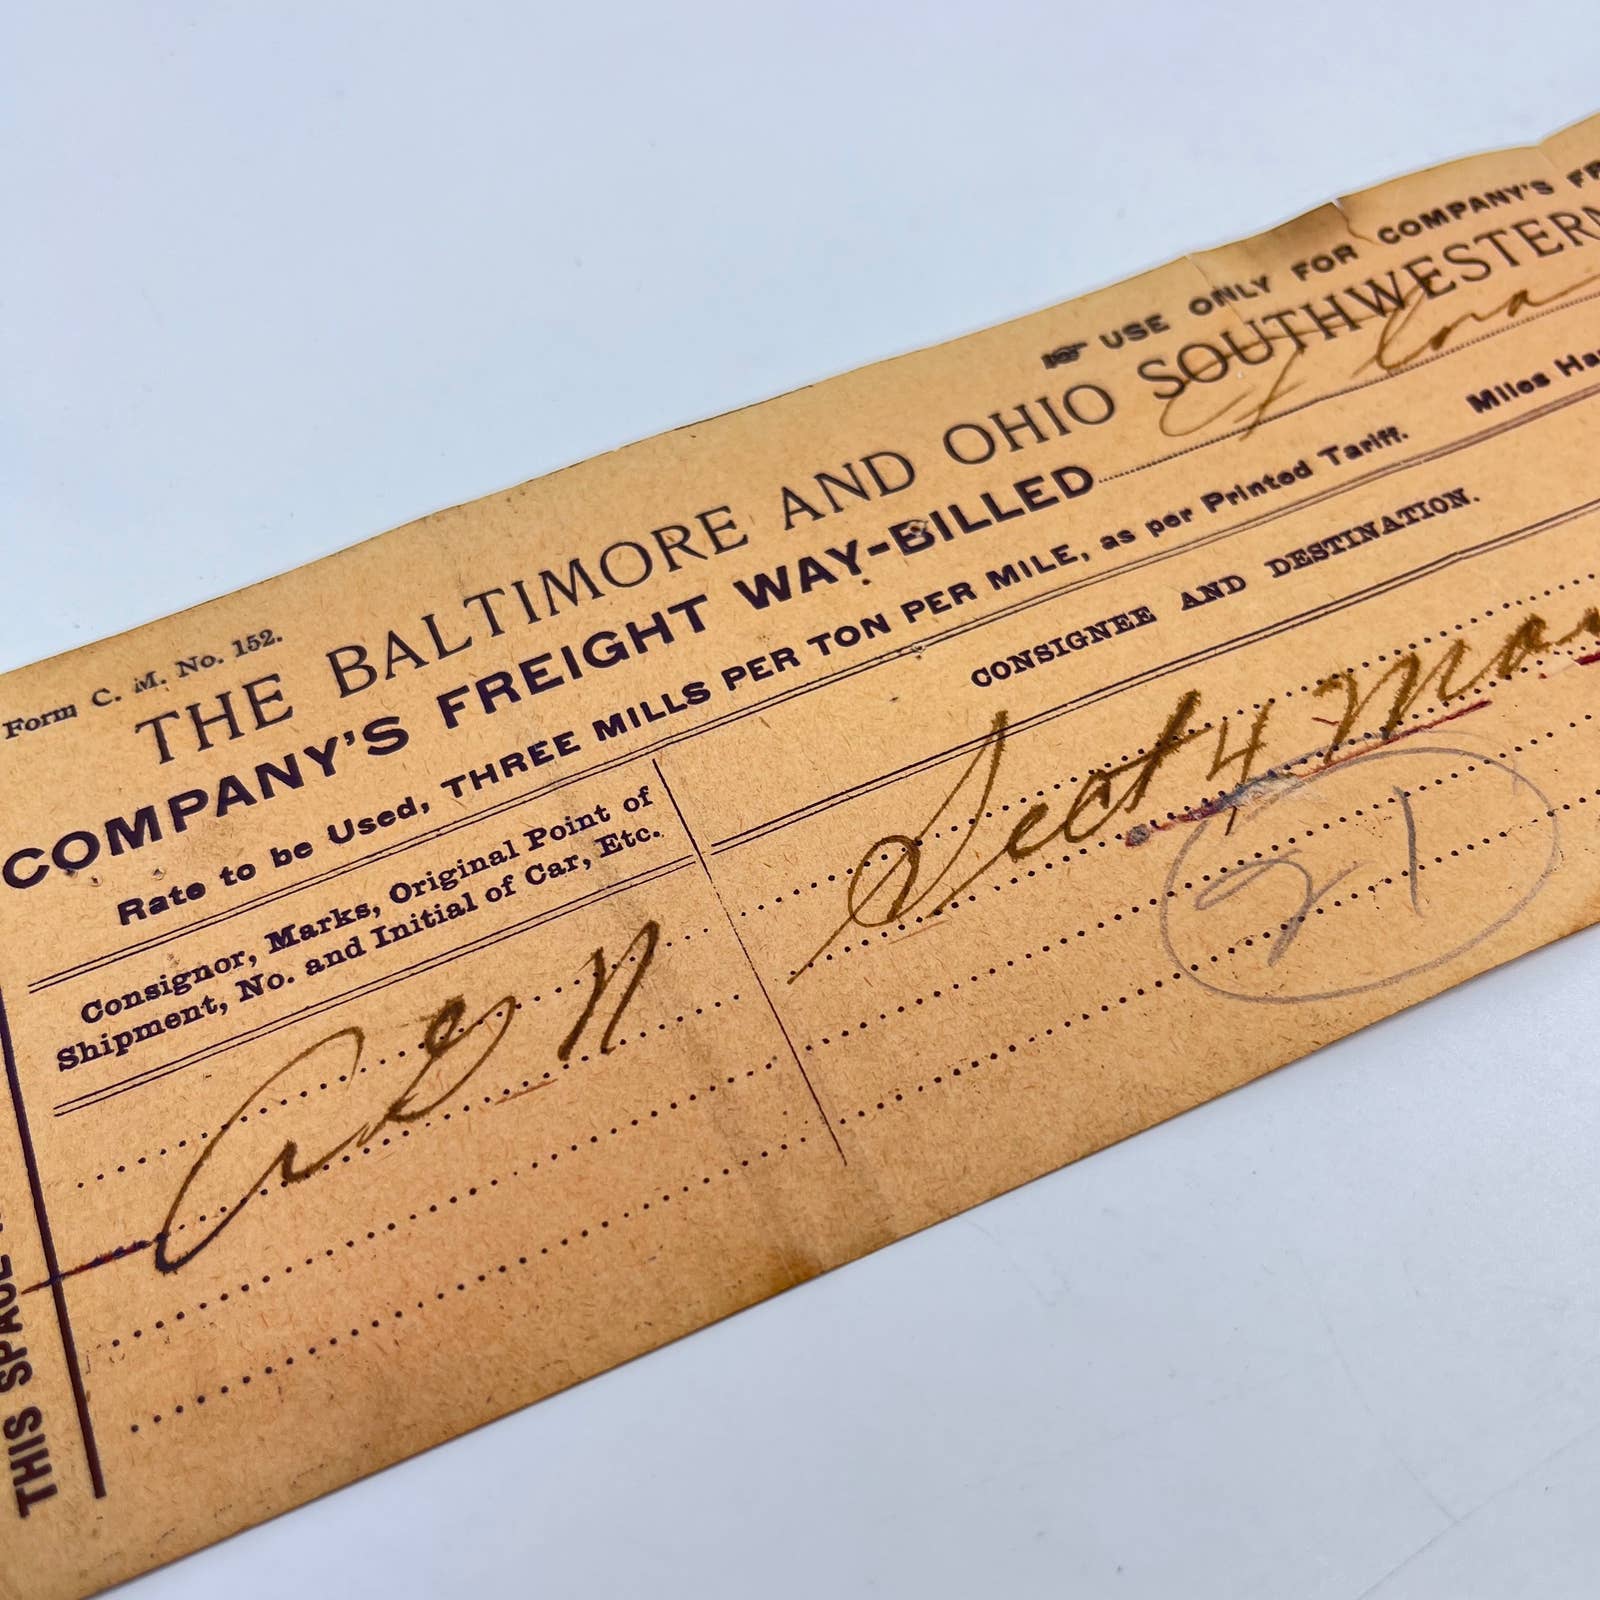 Form C. M. No. 152.
USE ONLY FOR COMPANY'S FR
THE BALTIMORE AND OHIO SOUTHWESTERN
COMPANY'S FREIGHT WAY-BILLED
Rate to be Used, THREE MILLS PER TON PER MILE, as per Printed Tariff. Miles Ha
Consignor, Marks, Original Point of
Shipment, No. and Initial of Car, Etc.
CONSIGNEE AND DESTINATION.
Sect 4
21
THIS SPACE